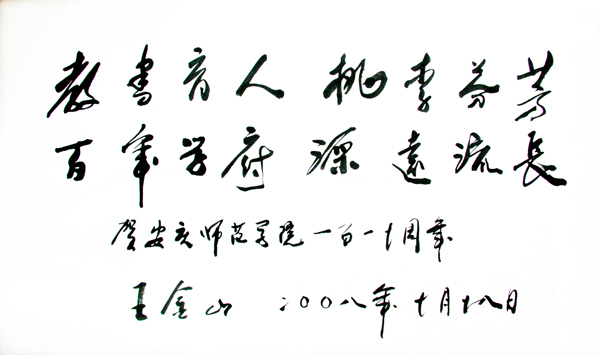 教書育人 桃李芬芳
百年学府 源遠流長
贺安庆师范学院一百一十周年
王金山 二〇〇八年十月十八日